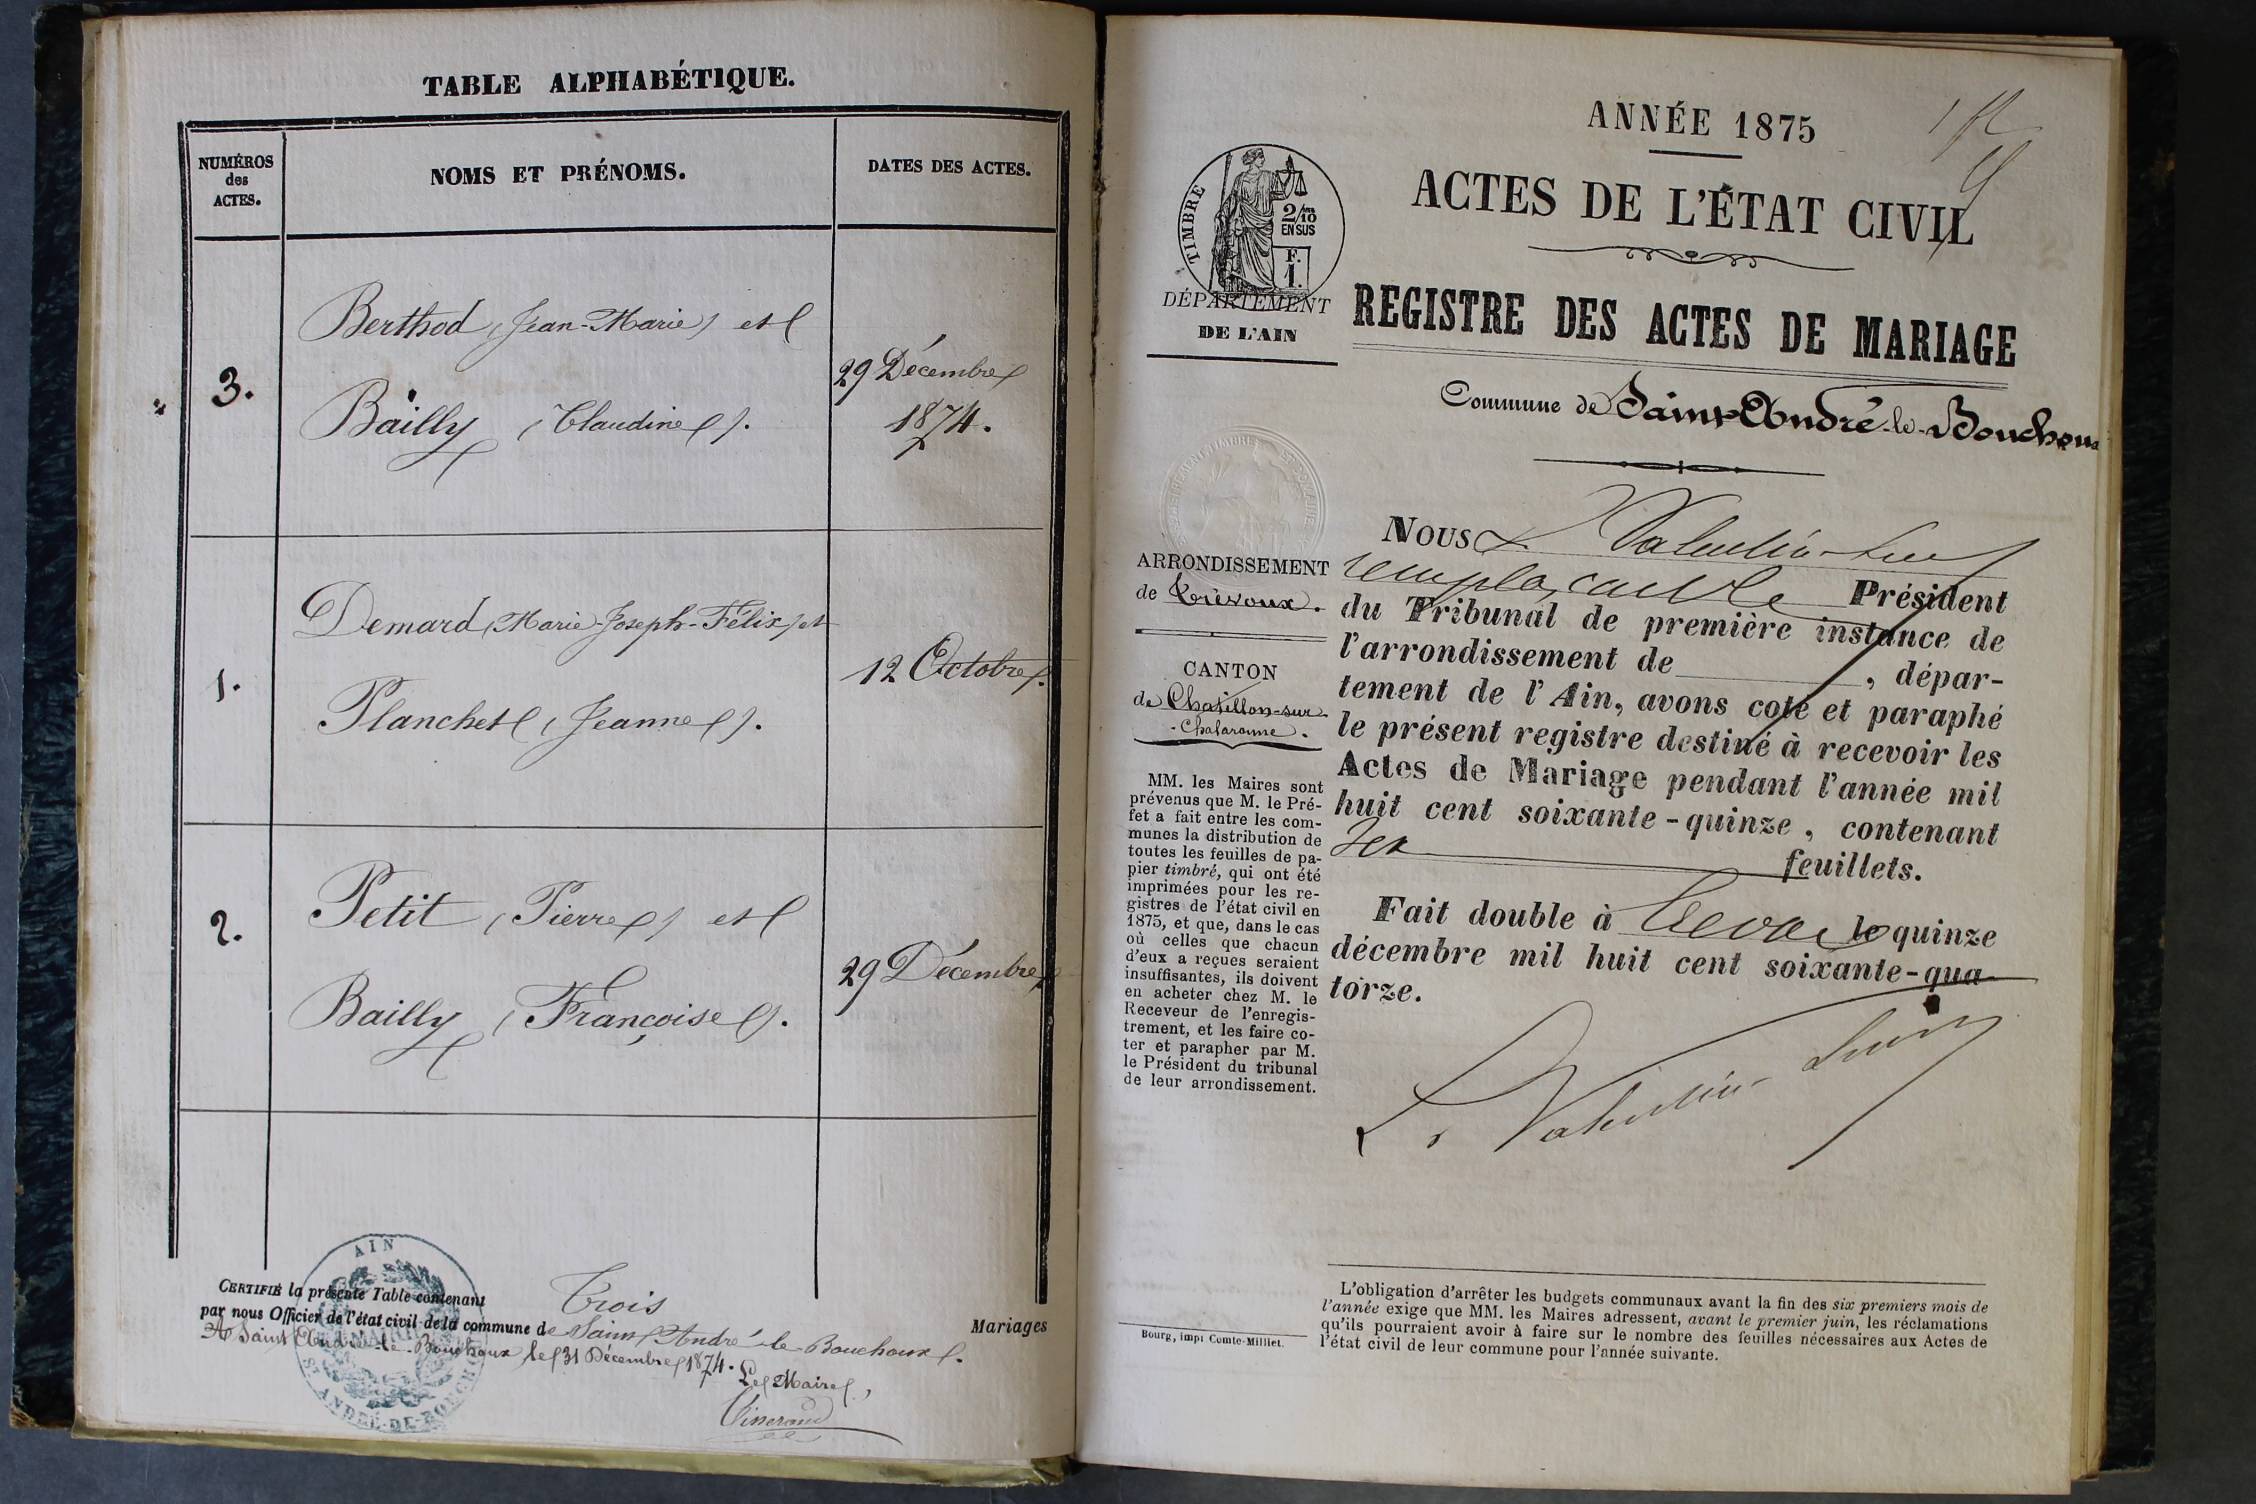 TABLE ALPHABÉTIQUE.
NUMÉROS
des
ACTES.
NOMS ET PRÉNOMS.
DATES DES ACTES.
3.
Berthod (Jean-Marie) et
Bailly (Claudine).
29 Décembre
1874.
1.
Demard (Marie-Joseph-Félix) et
Planchet (Jeanne).
12 Octobre.
2.
Petit (Pierre) et
Bailly (Françoise).
29 Décembre
CERTIFIÉ la présente Table contenant Trois Mariages
par nous Officier de l'état civil de la commune de Saint André-le-Bouchoux.
A Saint André-le-Bouchoux le 31 Décembre 1874.
Le Maire,
AIN
MAIRIE
ST ANDRÉ-DE-BOUCH
ANNÉE 1875
ACTES DE L'ÉTAT CIVIL
TIMBRE
2/10
EN SUS
F.
1.
DÉPARTEMENT
DE L'AIN
REGISTRE DES ACTES DE MARIAGE
Commune de Saint André-le-Bouchoux
ARRONDISSEMENT
de Trévoux.
CANTON
de Chatillon-sur
-Chalaronne.
MM. les Maires sont
prévenus que M. le Pré-
fet a fait entre les com-
munes la distribution de
toutes les feuilles de pa-
pier timbré, qui ont été
imprimées pour les re-
gistres de l'état civil en
1875, et que, dans le cas
où celles que chacun
d'eux a reçues seraient
insuffisantes, ils doivent
en acheter chez M. le
Receveur de l'enregis-
trement, et les faire co-
ter et parapher par M.
le Président du tribunal
de leur arrondissement.
NOUS L. Valentin-
remplaçant le Président
du Tribunal de première instance de
l'arrondissement de , dépar-
tement de l'Ain, avons coté et paraphé
le présent registre destiné à recevoir les
Actes de Mariage pendant l'année mil
huit cent soixante-quinze, contenant
feuillets.
Fait double à Trévoux le quinze
décembre mil huit cent soixante-qua-
torze.
L. Valentin
L'obligation d'arrêter les budgets communaux avant la fin des six premiers mois de
l'année exige que MM. les Maires adressent, avant le premier juin, les réclamations
qu'ils pourraient avoir à faire sur le nombre des feuilles nécessaires aux Actes de
l'état civil de leur commune pour l'année suivante.
Bourg, impr Comte-Milliet.